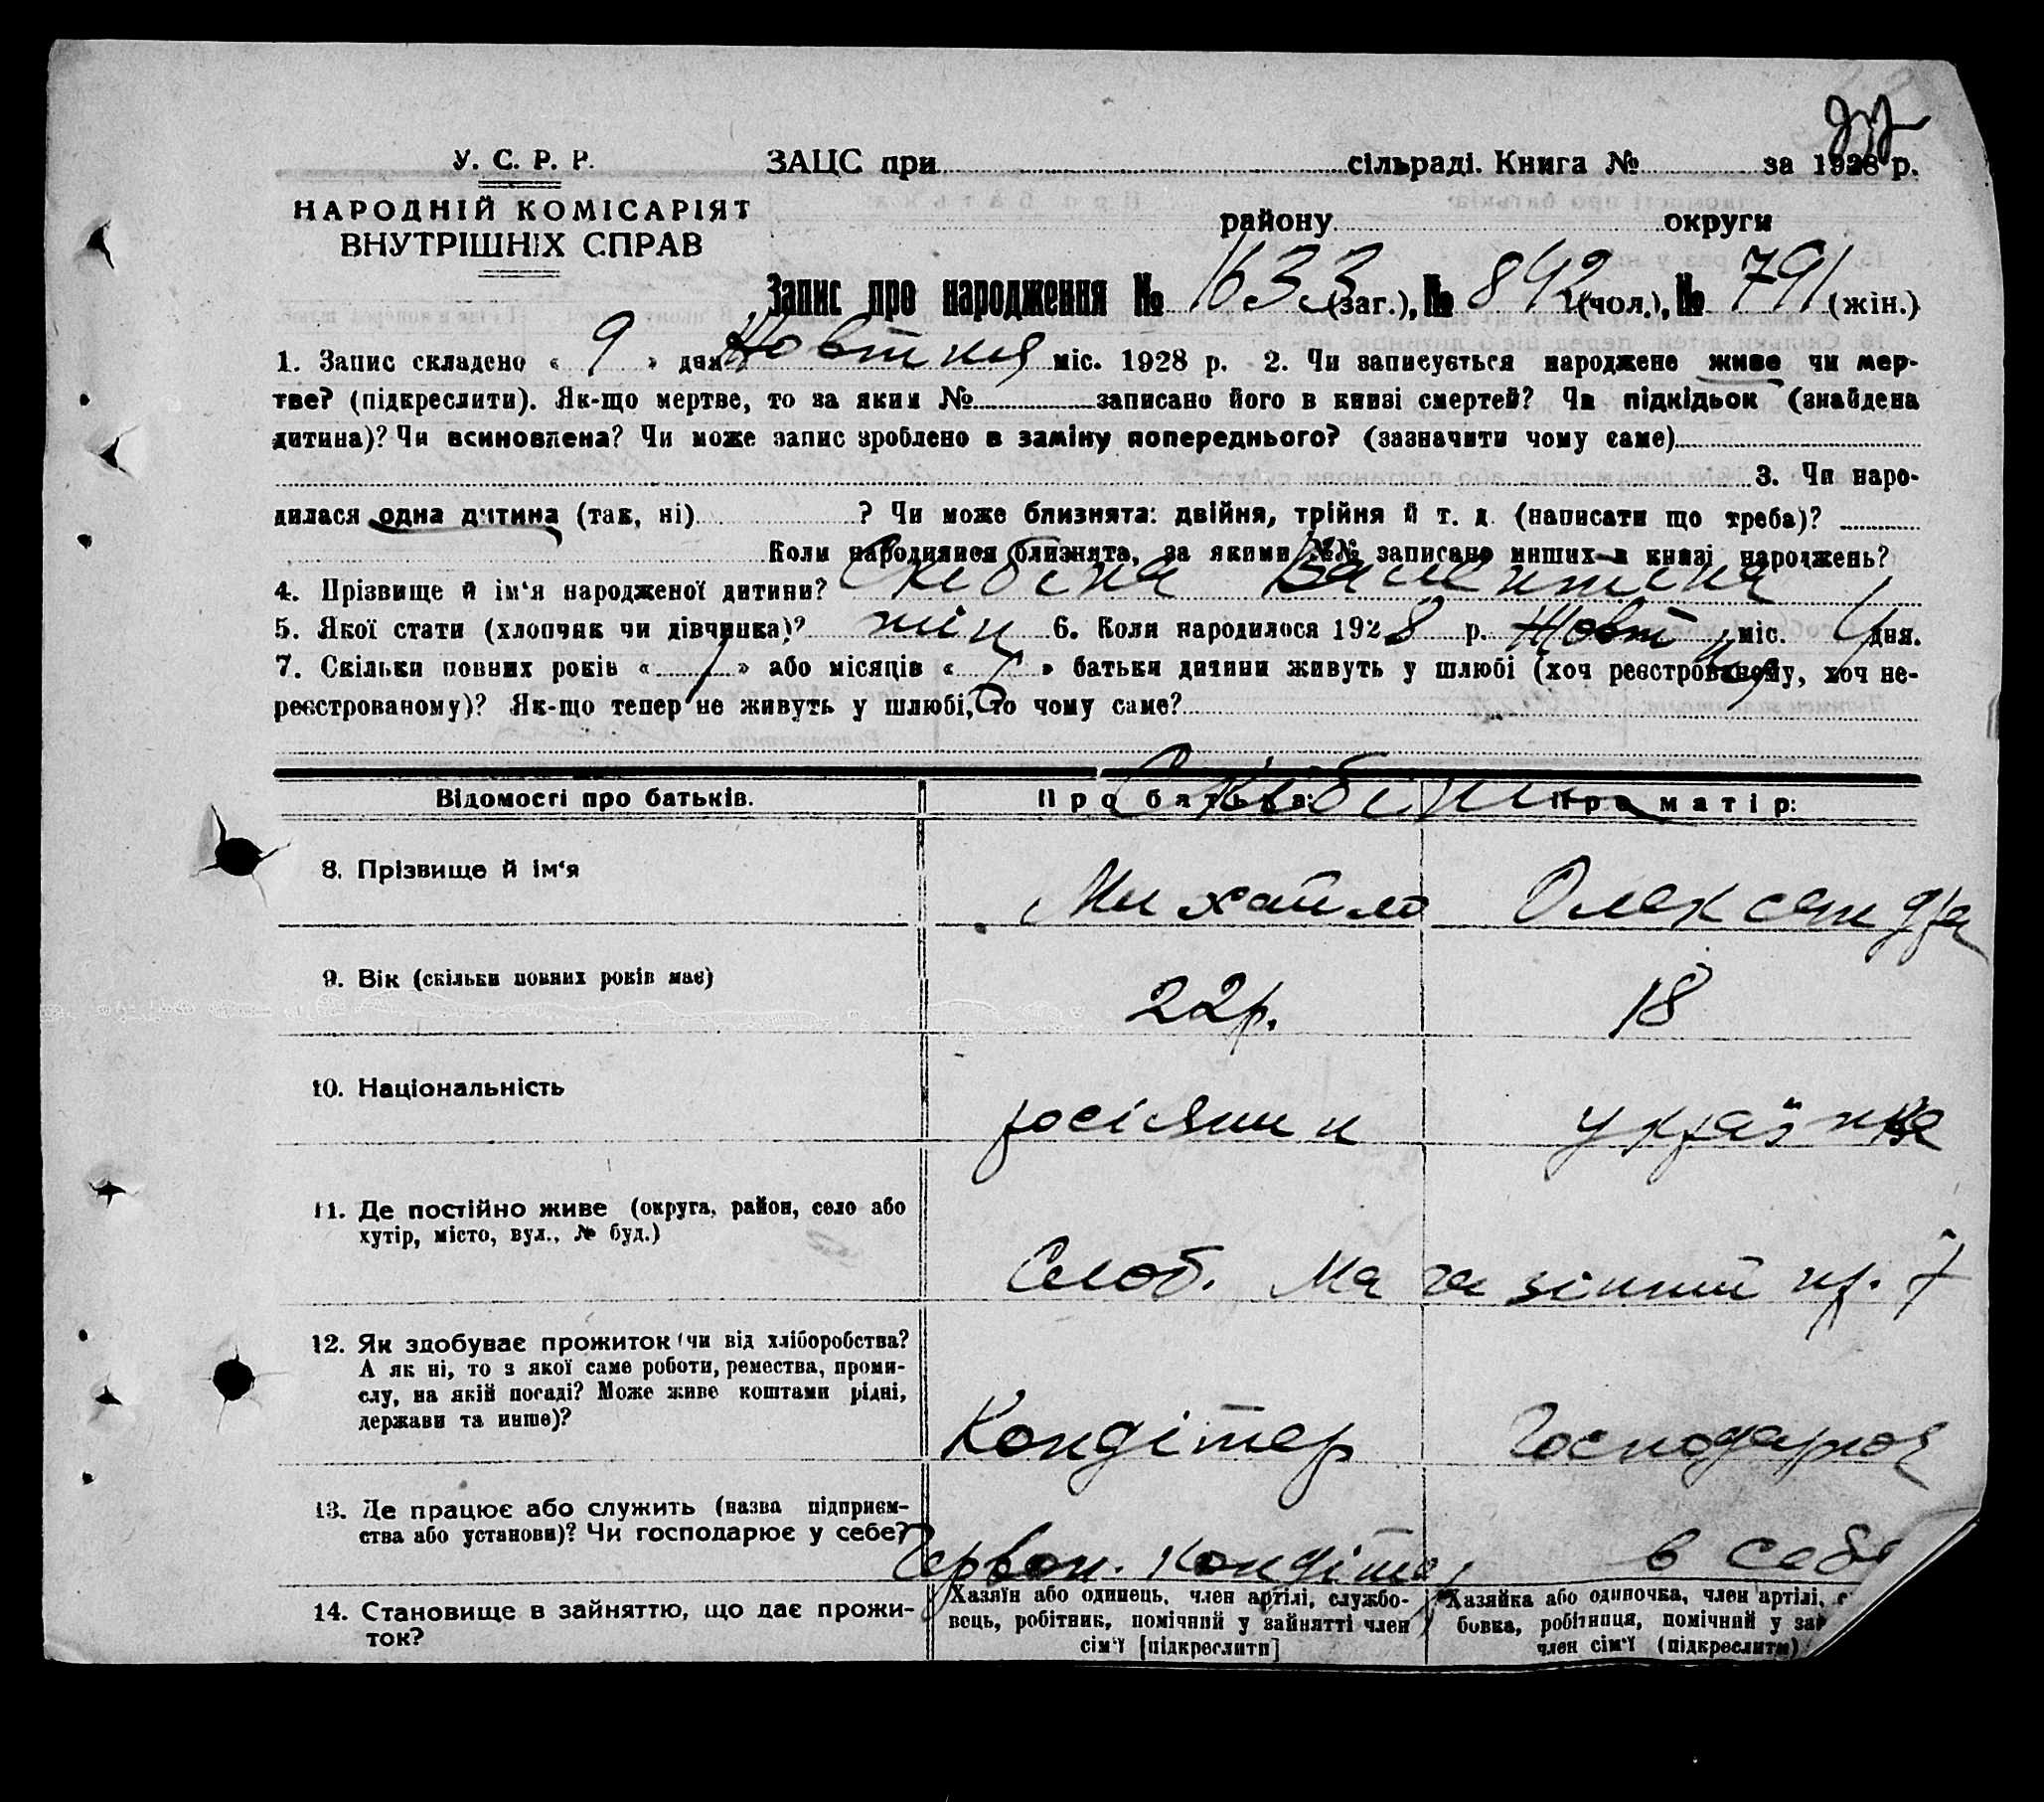 У. С. Р. Р. ЗАЦС при сільраді. Книга № за 1928 р.
НАРОДНІЙ КОМІСАРІЯТ
ВНУТРІШНІХ СПРАВ
району округи
Запис про народження № 1633 (заг.), № 842 (чол.), № 791 (жін.)
1. Запис складено « 9 » дня Жовтня міс. 1928 р. 2. Чи записується народжене живе чи мер-
тве? (підкреслити). Як-що мертве, то за яким № записано його в книзі смертей? Чи підкідьок (знайдена
дитина)? Чи всиновлена? Чи може запис зроблено в заміну попереднього? (зазначити чому саме)
3. Чи наро-
дилася одна дитина (так, ні) ? Чи може близнята: двійня, трійня й т. д. (написати що треба)?
Коли народилися близнята, за якими №№ записано инших в книзі народжень?
4. Прізвище й ім'я народженої дитини? Скібіна Валентина
5. Якої стати (хлопчик чи дівчинка)? жін 6. Коли народилося 1928 р. Жовтня міс. дня.
7. Скільки повних років « 1 » або місяців « » батьки дитини живуть у шлюбі (хоч реєстрованому, хоч не-
реєстрованому)? Як-що тепер не живуть у шлюбі, то чому саме?
Відомості про батьків. Про батька: Про матір:
Скібіни
8. Прізвище й ім'я Михайло Олександра
9. Вік (скільки повних років має) 22р. 18
10. Національність росіянин українка
11. Де постійно живе (округа, район, село або
хутір, місто, вул., № буд.)
Слоб. Магазінний пр. 7
12. Як здобуває прожиток (чи від хліборобства?
А як ні, то з якої саме роботи, ремества, проми-
слу, на якій посаді? Може живе коштами рідні,
держави та инше)?
Кондітер Господарює
13. Де працює або служить (назва підприєм-
ства або установи)? Чи господарює у себе?
Червон. Кондітер в себе
14. Становище в зайняттю, що дає прожи-
ток?
Хазяїн або одинець, член артілі, службо-
вець, робітник, помічний у зайнятті член
сім'ї [підкреслити]
Хазяйка або одиночка, член артілі, с
бовка, робітниця, помічний у зай
член сім'ї (підкреслити)